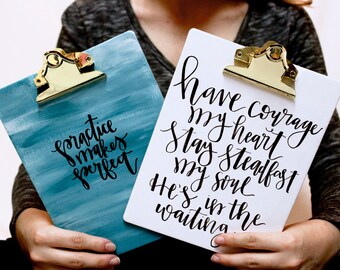 practice
makes
perfect
have courage
my heart
stay steadfast
my soul
He's in the
waiting